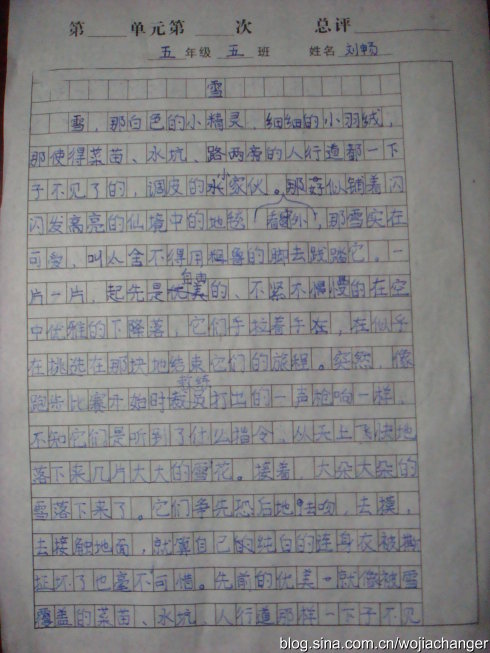 第 单元第 次 总评
五 年级 五 班 姓名 刘畅
雪
雪，那白色的小精灵，细细的小羽绒，
那使得菜苗、水坑、路两旁的人行道都一下
子不见了的，调皮的小家伙。那好似铺着闪
闪发亮的仙境中的地毯，那雪实在
可爱，叫人舍不得用粗鲁的脚去践踏它。一
片一片，起先是自由的、不紧不慢的在空
中优雅的下降落，它们手拉着手在，在似乎
在挑选在那块地结束它们的旅程。突然，像
跑步比赛开始时教练打出的一声枪响一样，
不知它们是听到了什么指令，从天上飞快地
落下来几片大大的雪花。接着，大朵大朵的
雪落下来了。它们争先恐后地去吻，去摸，
去接触地面，就算自己的纯白的连身衣被撕
扯坏了也毫不可惜。先前的优美，就像被雪
覆盖的菜苗、水坑、人行道那样一下子不见
blog.sina.com.cn/wojiachanger